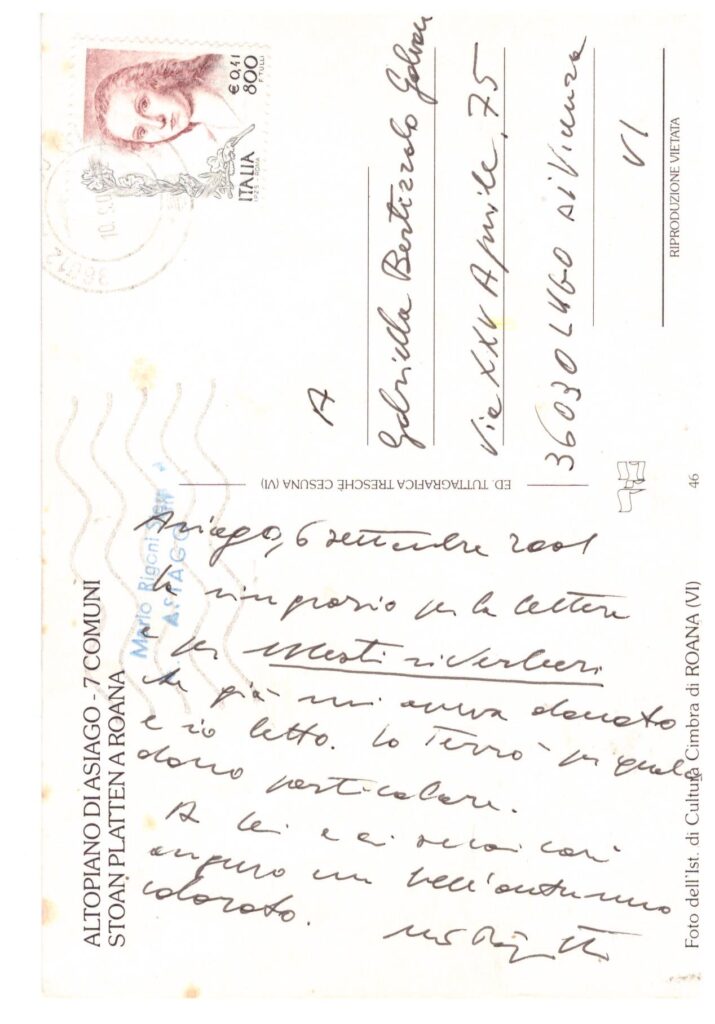 ALTOPIANO DI ASIAGO - 7 COMUNI
STOAN PLATTEN A ROANA
Mario Rigoni Stern
ASIAGO
Asiago, 6 settembre 2001
La ringrazio per la lettera
e per Mesti riverberi
che già mi aveva donato
e io letto. Lo Terrò per quel
dono particolare.
A lei e ai suoi cari
auguro un bell'autunno
colorato.
Foto dell'Ist. di Cultura Cimbra di ROANA (VI)
46
ED. TUTTAGRAFICA TRESCHÈ CESUNA (VI)
€ 0,41
800
F. TULLI
ITALIA
1925 - ROMA
36012
10.
A
Gabriella Bertizzolo
Via XXV Aprile, 75
36030 LUGO di Vicenza
VI
RIPRODUZIONE VIETATA